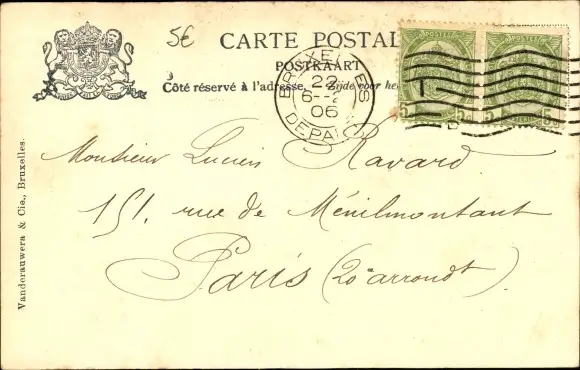 5€
CARTE POSTAL
POSTKAART
Côté réservé à l'adresse. Zijde voor he
BRUXELLES
22
06
DEPA
POSTES
POSTES
5c
5c
Monsieur Lucien Ravard
151. rue de Ménilmontant
Paris (20e arrondt)
Vanderauwera & Cie., Bruxelles.